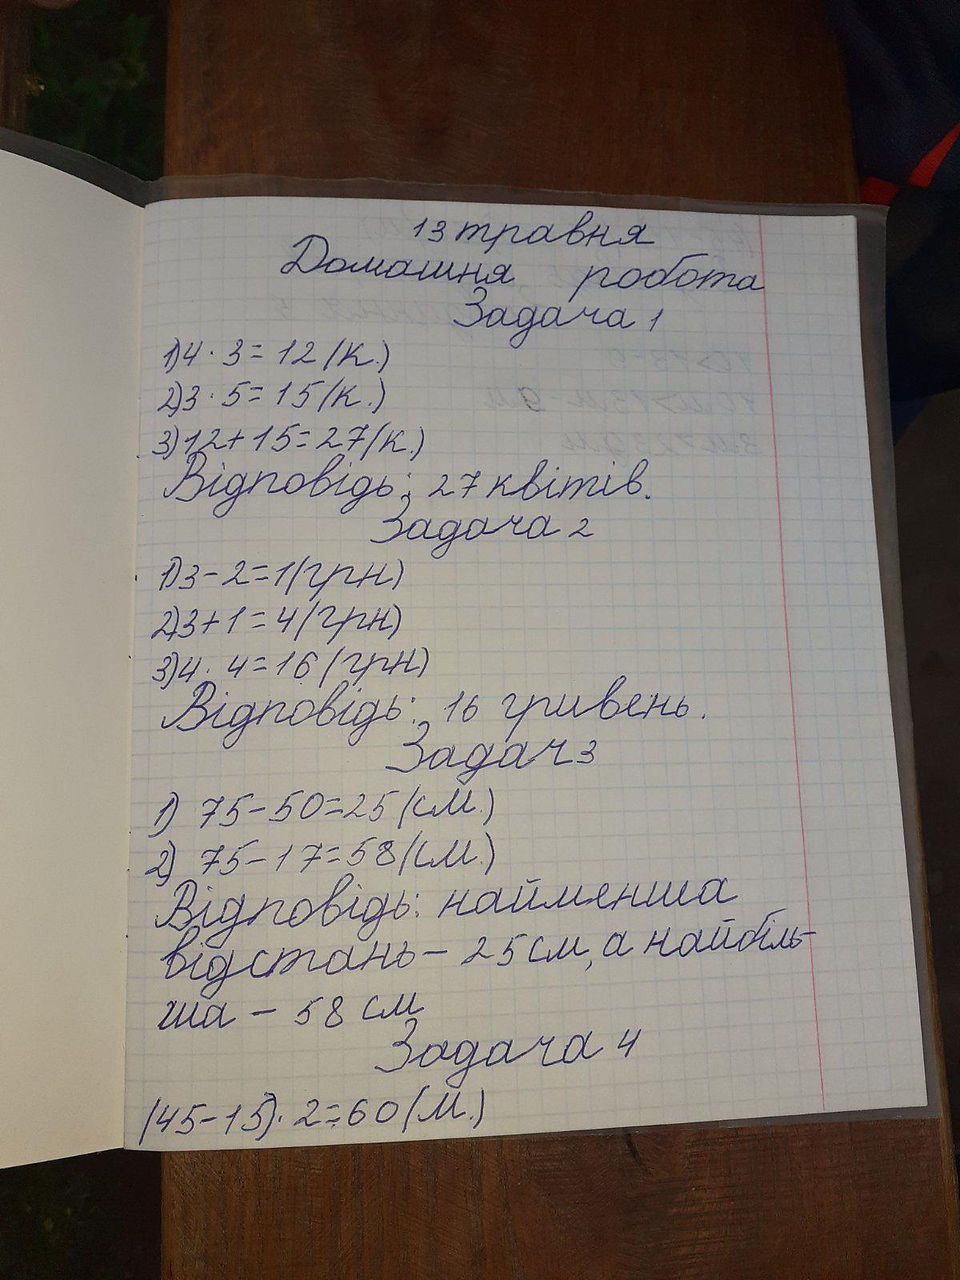 13 травня
Домашня робота
Задача 1
1) 4 · 3 = 12 (к.)
2) 3 · 5 = 15 (к.)
3) 12 + 15 = 27 (к.)
Відповідь: 27 квітів.
Задача 2
1) 3 - 2 = 1 (грн)
2) 3 + 1 = 4 (грн)
3) 4 · 4 = 16 (грн)
Відповідь: 16 гривень.
Задач 3
1) 75 - 50 = 25 (см.)
2) 75 - 17 = 58 (см.)
Відповідь: найменша
відстань - 25 см, а найбіль-
ша - 58 см
Задача 4
(45 - 15) · 2 = 60 (м.)